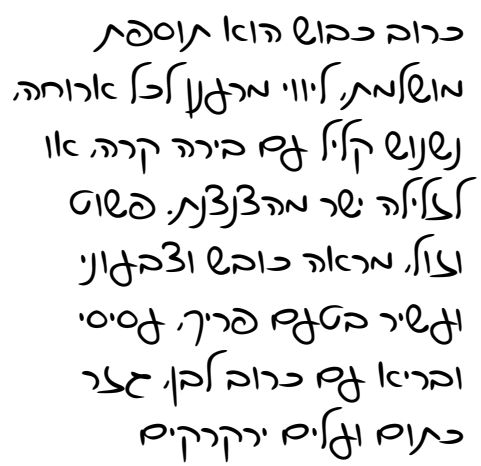 כרוב כבוש הוא תוספת
מושלמת, ליווי מרענן לכל ארוחה,
נשנוש קליל עם בירה קרה, או
לזלילה ישר מהצנצנת. פשוט
וזול, מראה כובש וצבעוני
ועשיר בטעם פריך, עסיסי
ובריא עם כרוב לבן, גזר
כתום ועלים ירקרקים